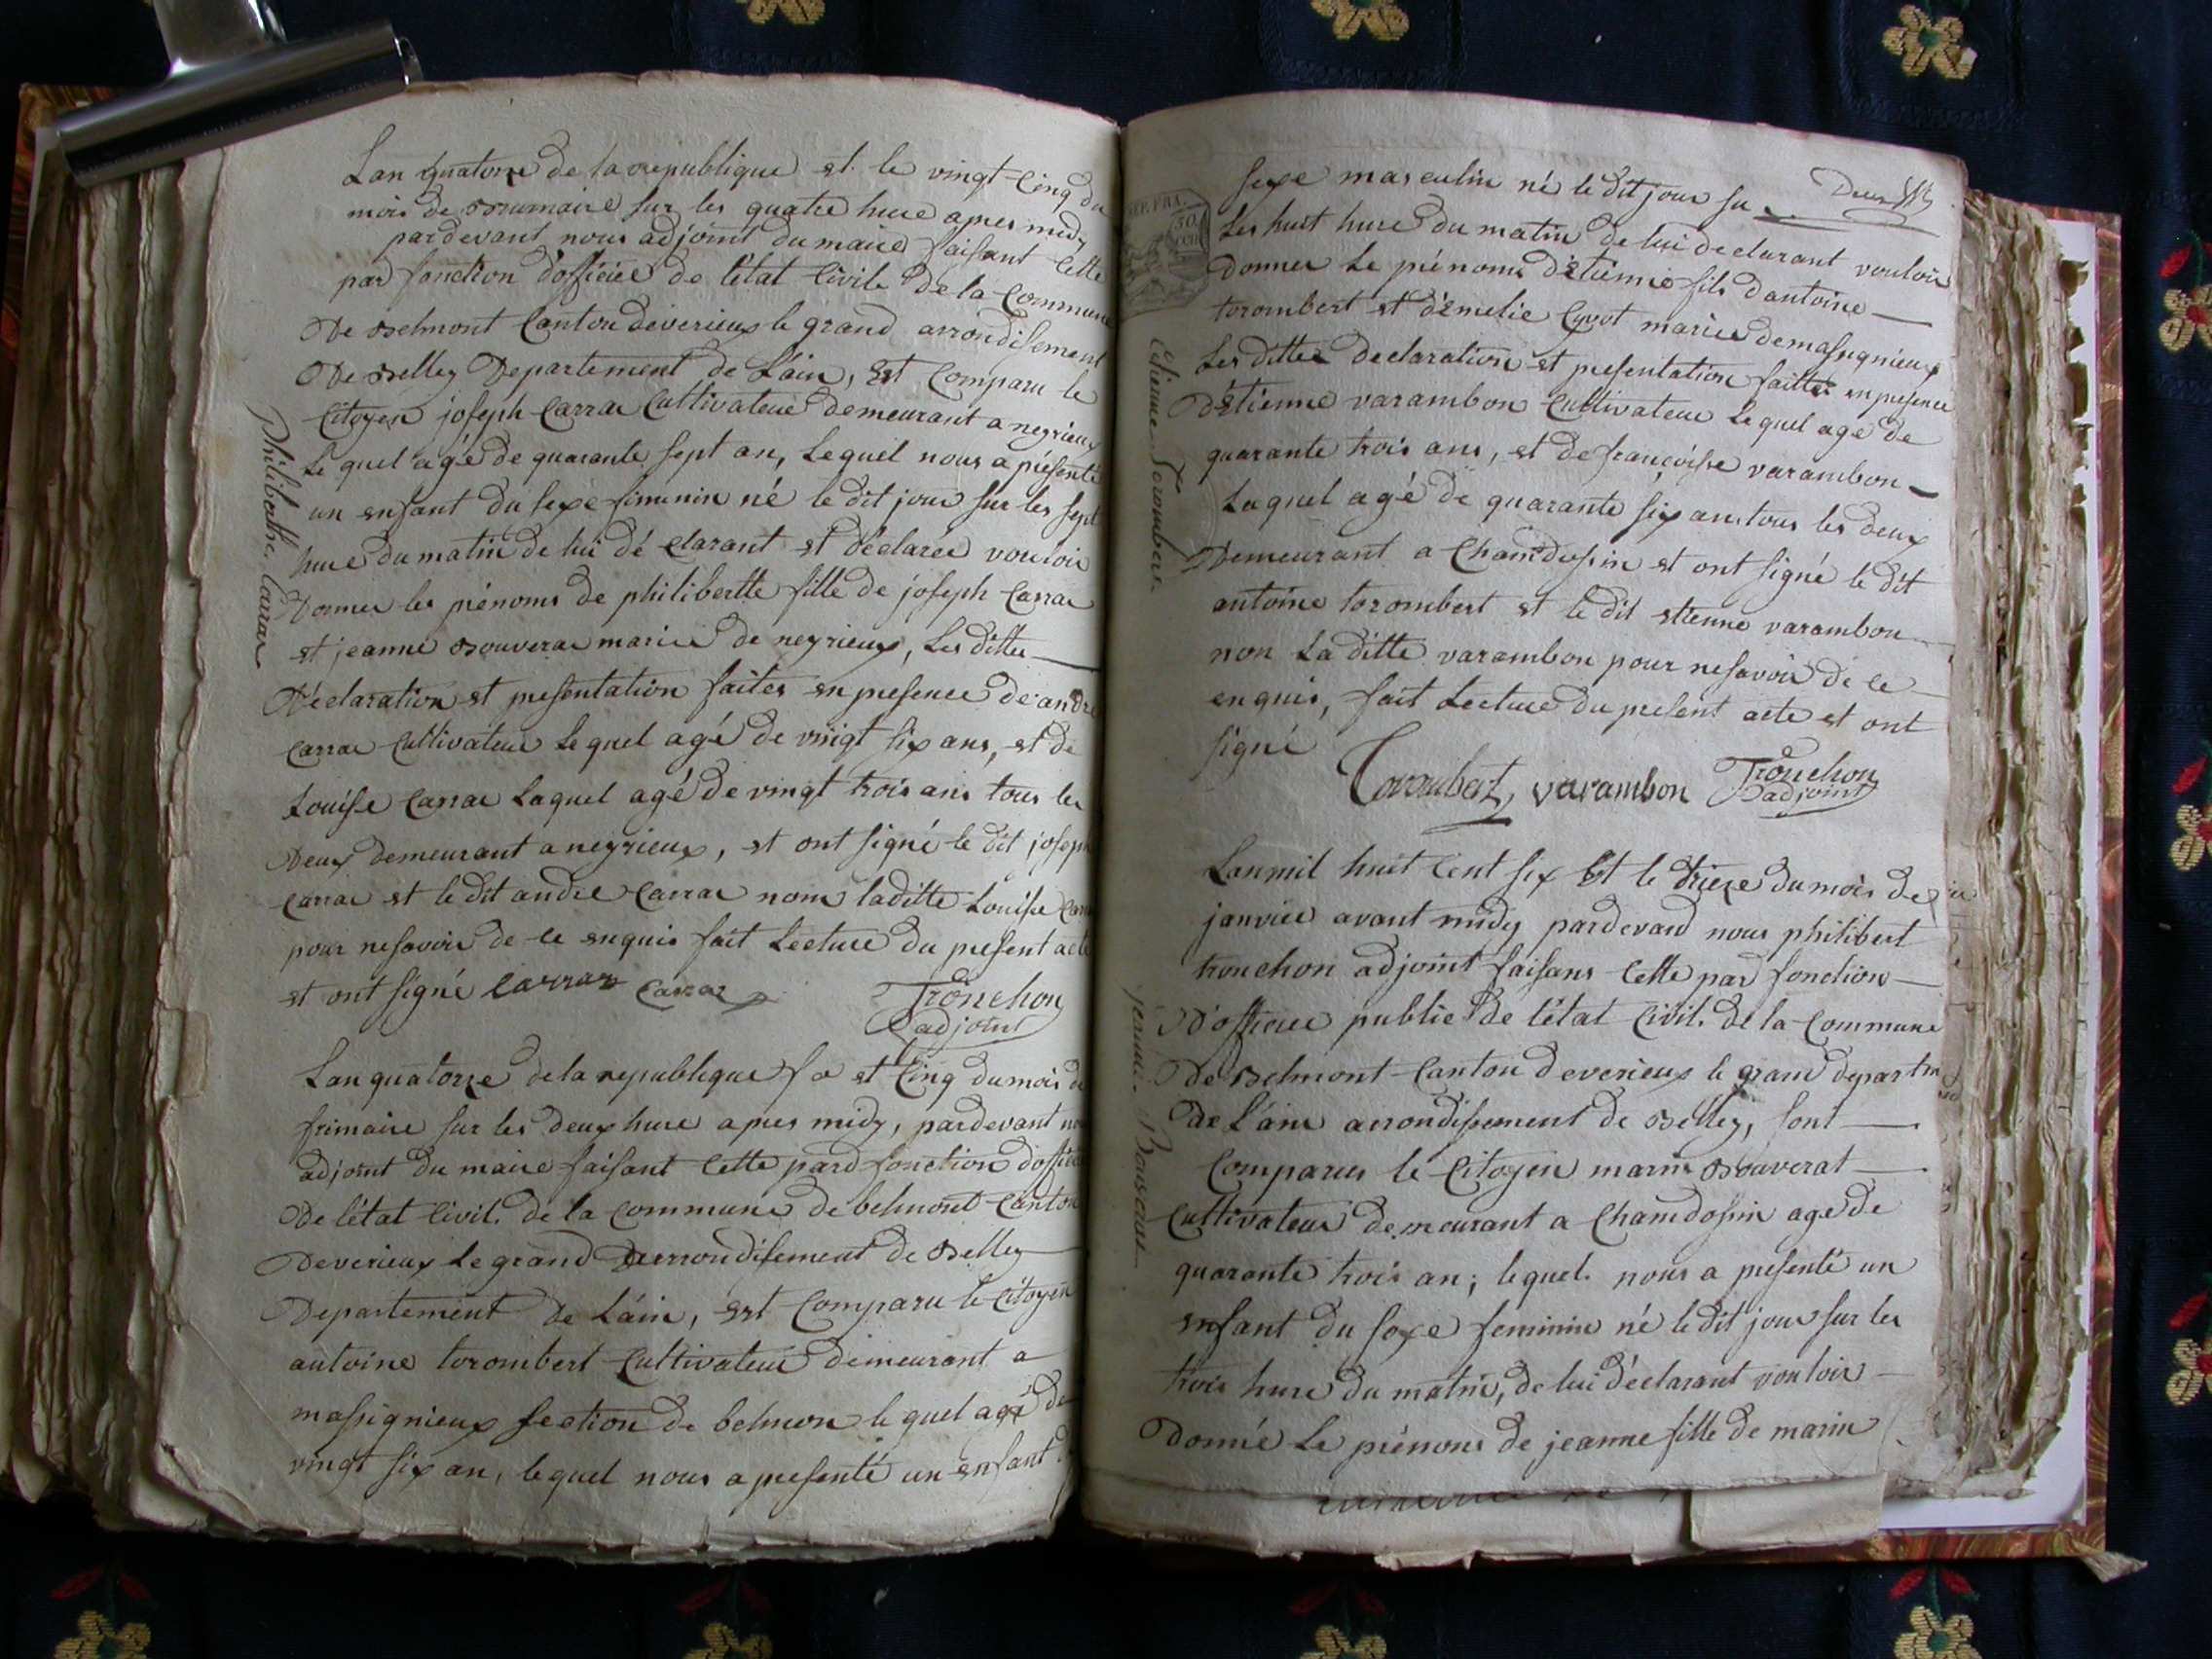 Lan quatorze de la republique et le vingt-cinq du
mois de Brumaire sur les quatre hure apres midy
pardevant nous adjoint du maire faisant cette
par fonction dofficier de létat Civil de la Commune
De Belmont Canton deverieux le grand arrondisement
De Belley Departement de Láin, Est Comparu le
Citoyen joseph Carrar Cultivateur demeurant a neyrieux
Le quel agé de quarante sept an, Lequel nous a présenté
un enfant du sexe feminin né le dit jour sur les sept
hure du matin de lui dé clarant et déclarée vouloir
Donner les prénoms de philibertte fille de joseph Carrar
et jeanne Bouverar mariés de neyrieux, Les dittes
Déclaration et presentation faites en presence de andre
Carrar Cultivateur Lequel agé de vingt six ans, et de
Louise Carrar Laquel agé de vingt trois ans tous les
Deux demeurant a neyrieux, et ont signé le dit joseph
Carrar et le dit andre Carrar nom laditte Louise
pour nesavoir de ce enquis fait Lecture du present acte
et ont signé Carrar Carrar Tronchon
adjoint
Philibatte Carrar
Lan quatorze dela republique et Cinq du mois de
frimaire sur les deux hure apres midy, pardevant
adjoint du maire faisant cette pard fonction
De létat Civil. de la Commune de belmont Canton
Deverieux Le grand arrondisement de Belley
Departement De Láin, Est Comparu le Citoyen
antoine torombert Cultivateur demeurant a
massignieux section de belmon le quel agé de
vingt six an, lequel nous a presenté un enfant
sexe masculin né le dit jour su
Les huit hure du matin de lui declarant vouloir
Donner Le prénoms détienne fils dantoine
torombert et démelie Cyvot mariés demassignieux
Les dittes declaration et presentation faittes en presence
Détienne varambon Cultivateur Le quel agé de
quarante trois ans, et de françoise varambon
Laquel agé de quarante six ans tous les deux
Demeurant a Chamdossin et ont signé le dit
antoine torombert et le dit etienne varambon
non La ditte varambon pour nesavoir de ce
enquis, fait Lecture du present acte et ont
signé
Torombert, varambon Tronchon
adjoint
REP. FRA.
50
Etienne Torombert
Lan mil huit Cent six Et le trieze du mois de
janvier avant midy pardevand nous philibert
tronchon adjoint faisans cette par fonction
D'officier public de létat Civil. de la Commune
De Belmont Canton deverieux le grand
de Láin arrondissement de Belley, sont
Comparus le Citoyen marin Bouverat
Cultivateur demeurant a Chamdossin age de
quarante trois an; lequel nous a presenté un
enfant du sexe feminin né le dit jour sur les
trois hure du matin, de lui déclarant vouloir
Donné Le prénoms de jeanne fille de marin